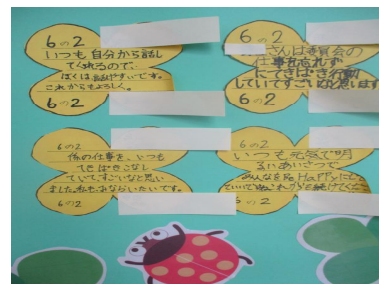 6の2
いつも自分から話し
てくれるので、
ぼくは話やすいです。
これからもよろしく。
6の2
6の2
さんは委員会の
仕事を忘れず
にてきぱき行動
していてすごいなと思います
6の2
6の2
係の仕事を、いつも
てきぱきこなし
ていてすごいなと思い
ました。私も見ならいたいです。
6の2
6の2
いつも元気で明
るいあいさつで
みんなを
6の2